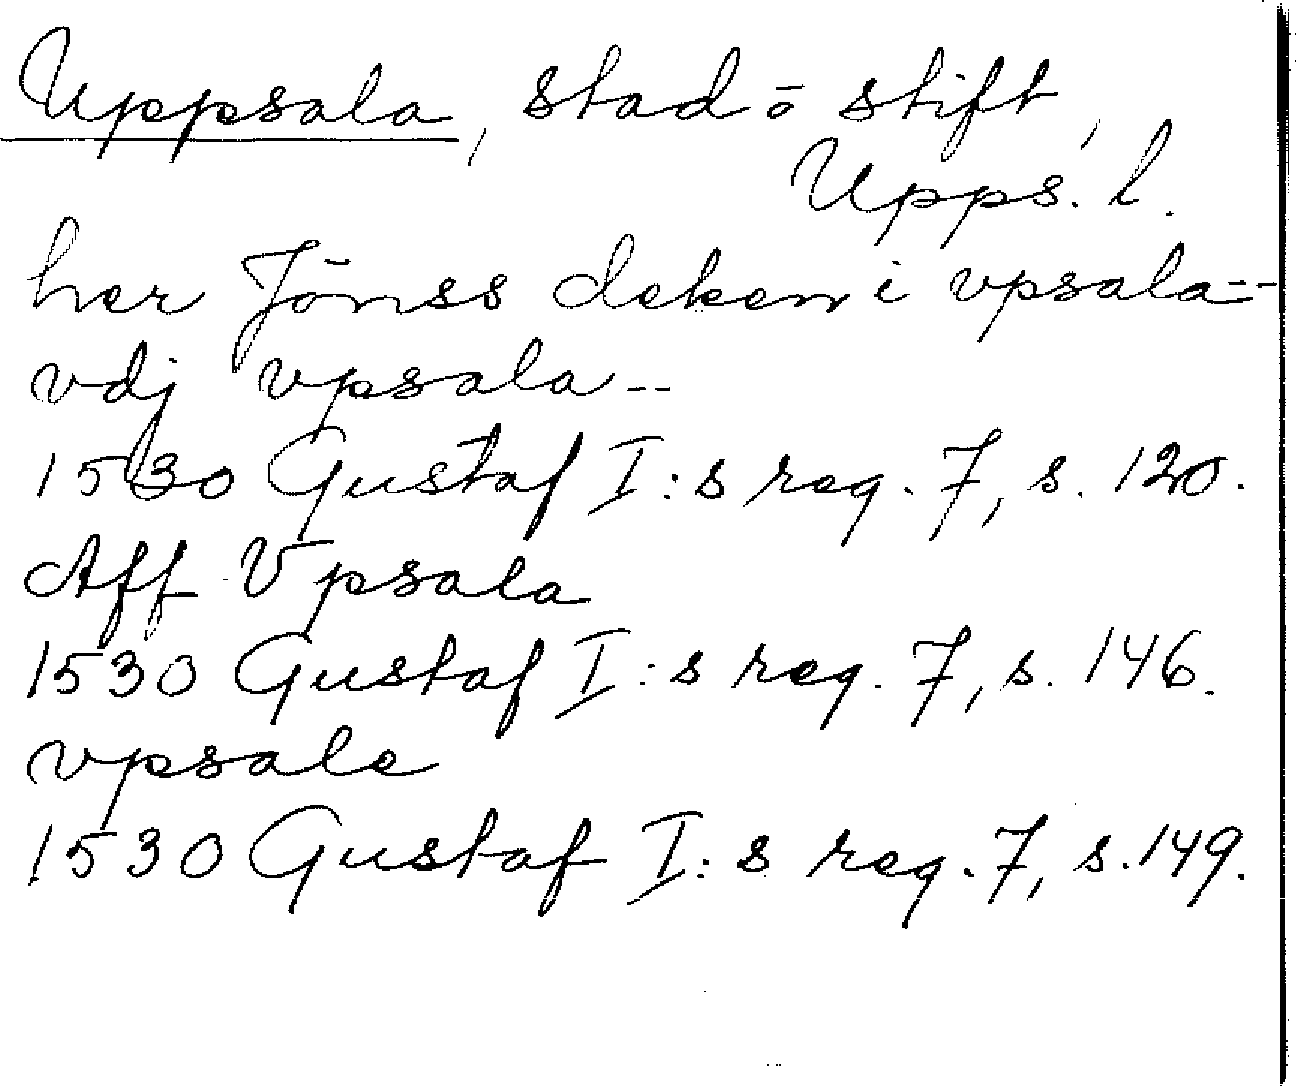 Uppsala, stad o stift,
Upps. l.
her Jönss deken i vpsala --
vdj vpsala --
1530 Gustaf I:s reg. 7, s. 120.
Aff Vpsala
1530 Gustaf I:s reg. 7, s. 146.
vpsale
1530 Gustaf I:s reg. 7, s. 149.